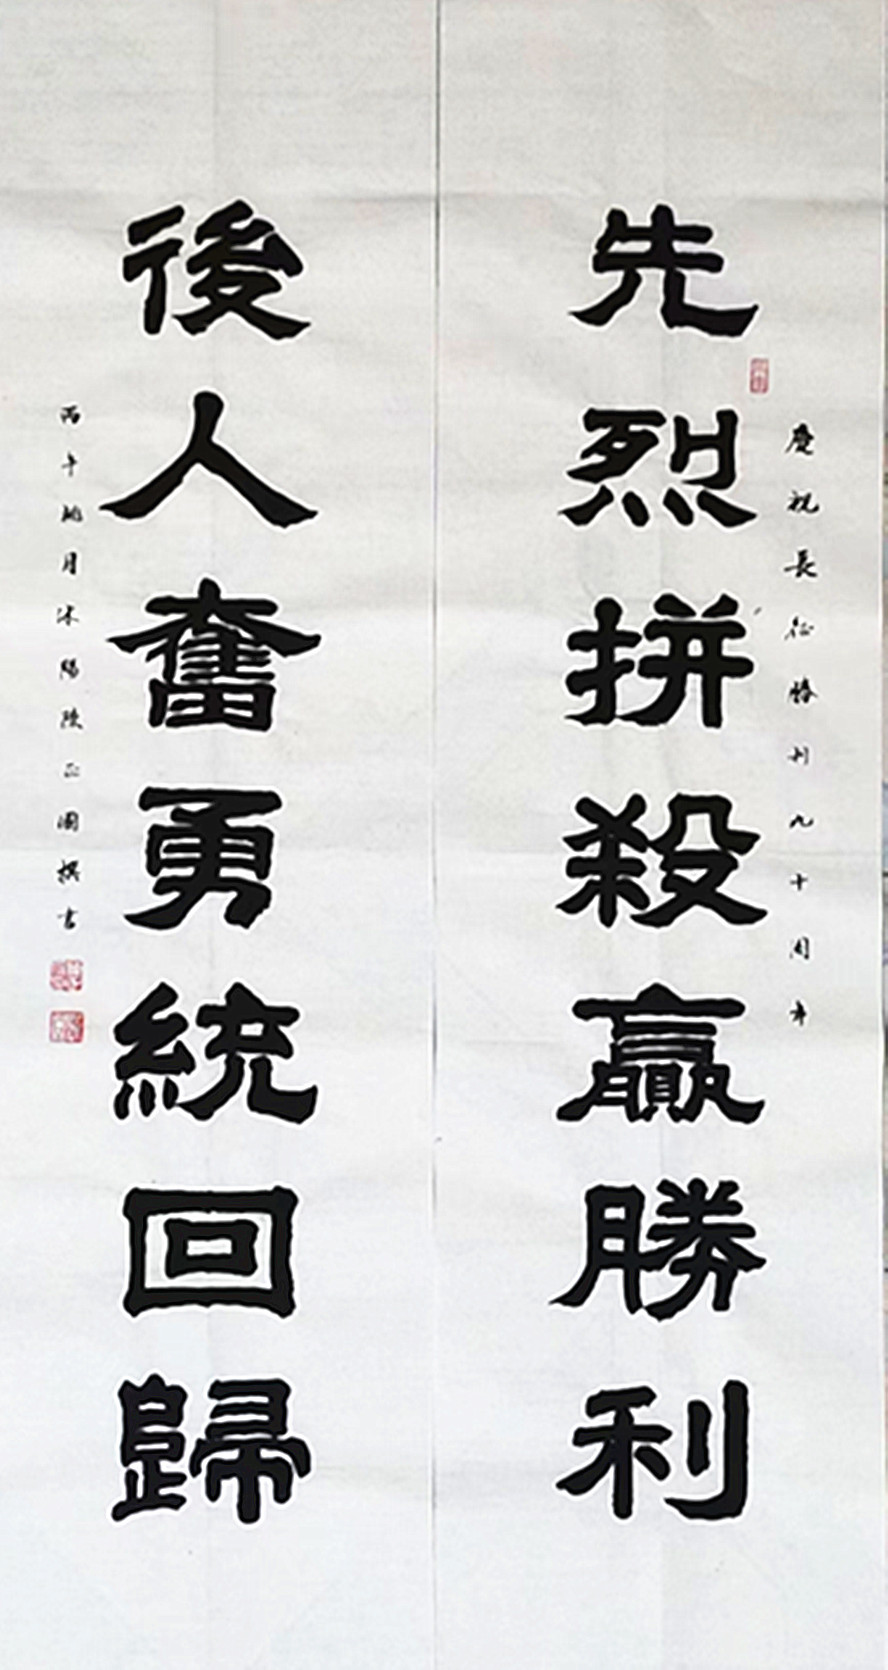 慶祝長征勝利九十周年
先烈拼殺贏勝利
後人奮勇統回歸
丙午桃月沭陽陸正國撰書